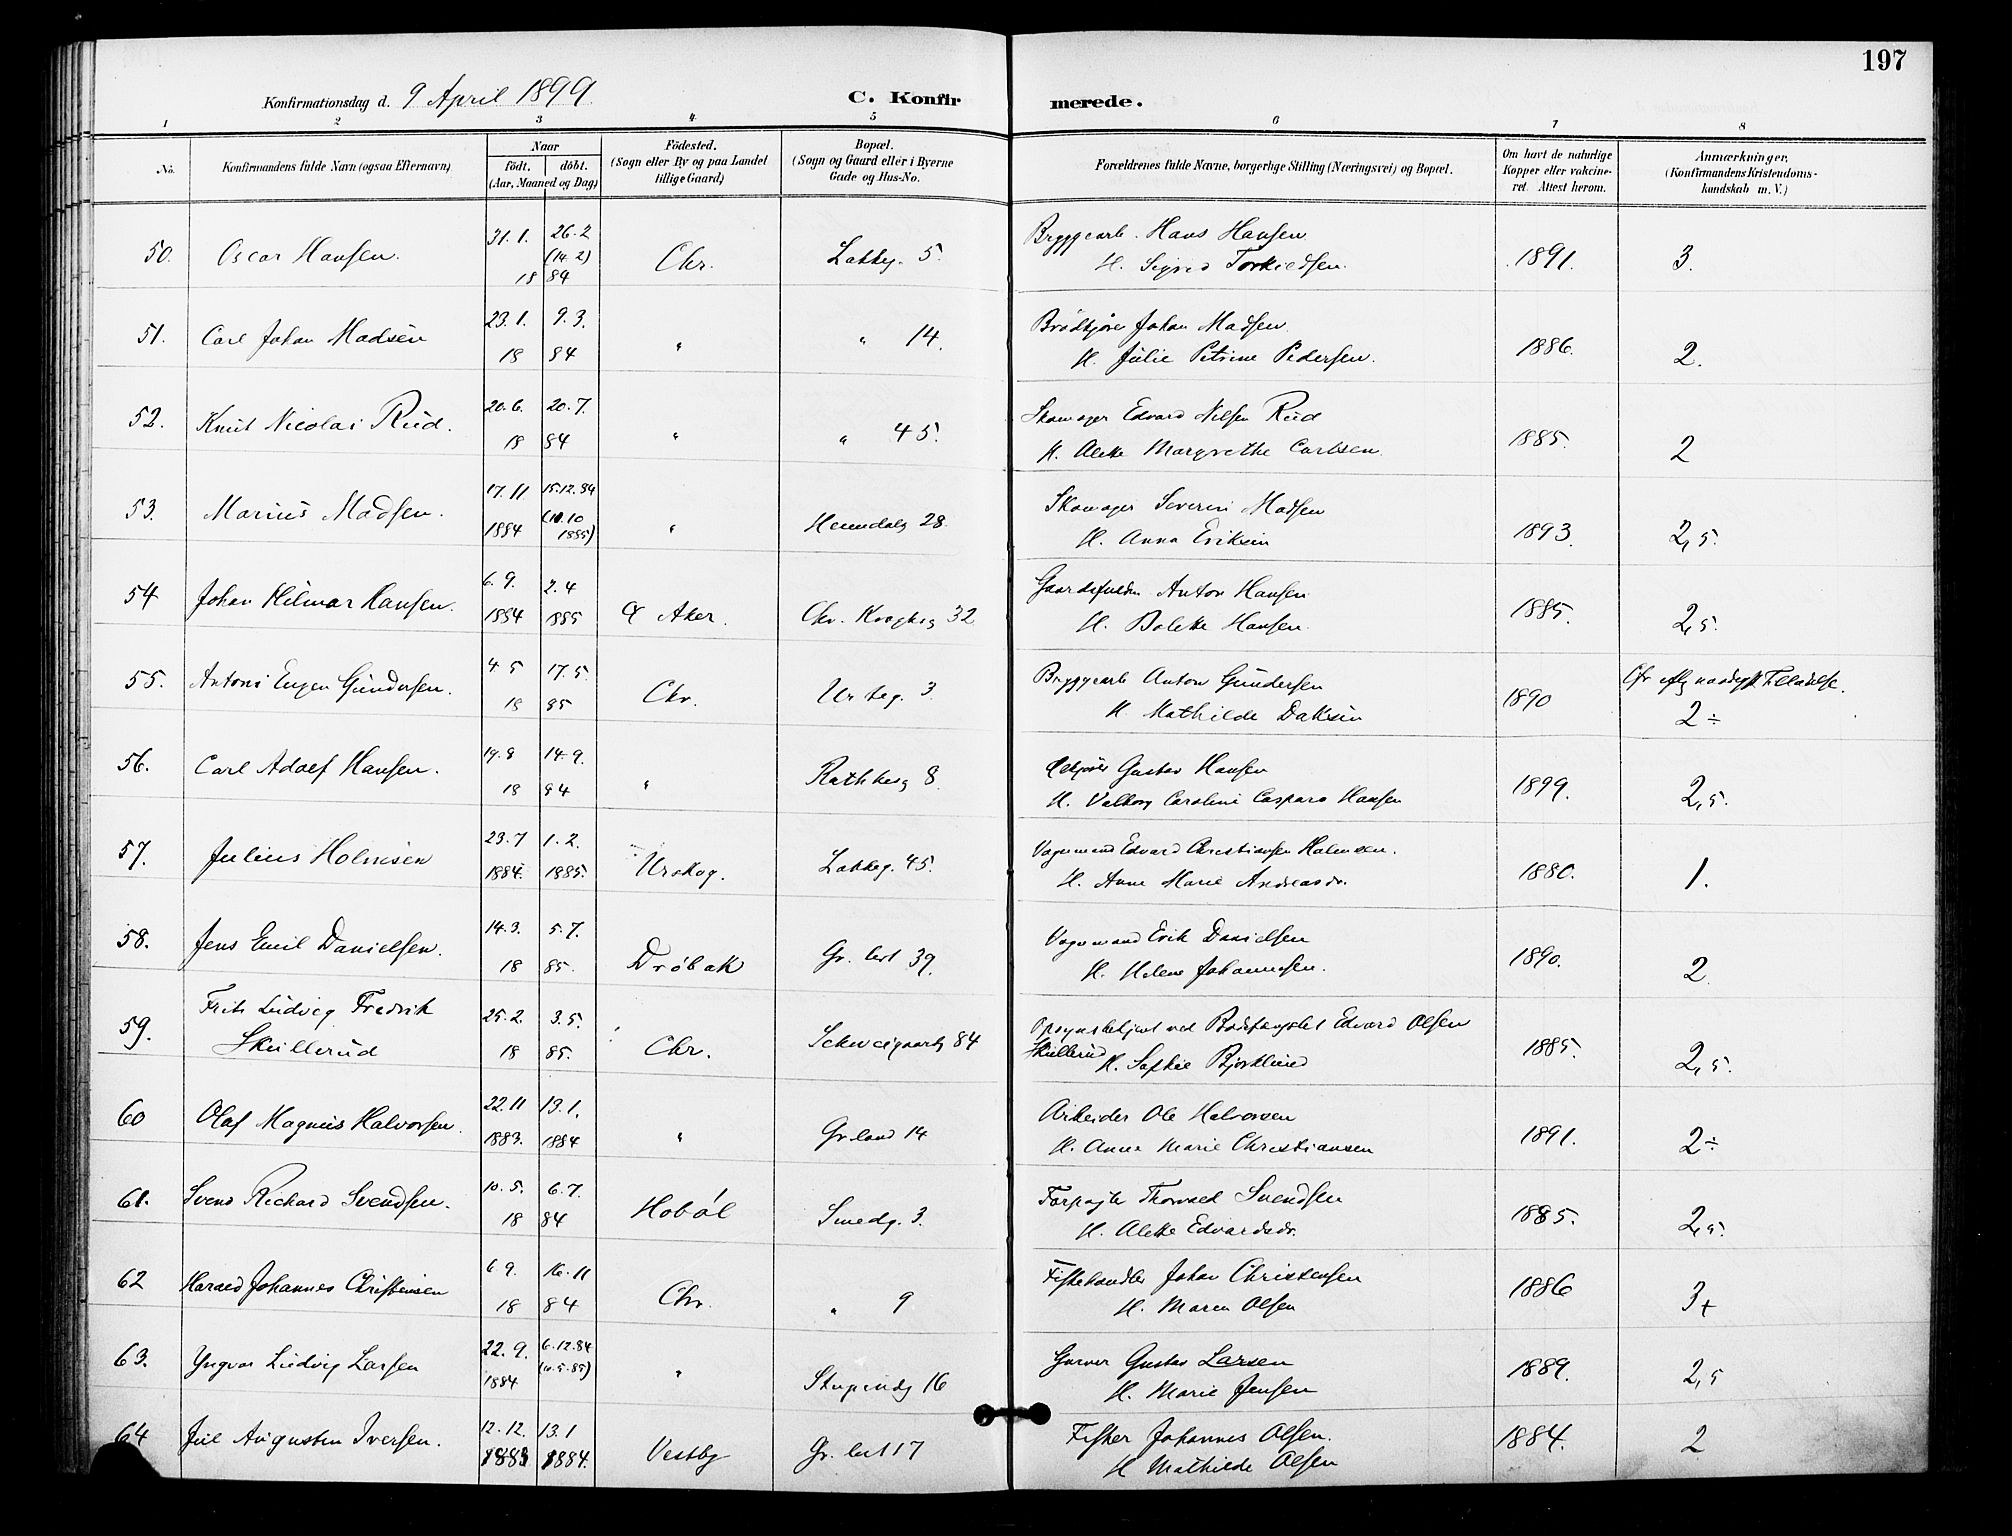 197
Konfirmationsdag d. 9 April 1899
C. Konfirmerede.
1 2 3 4 5 6 7 8
No.
Konfirmandens fulde Navn (ogsaa Efternavn)
Naar
födt. döbt.
(Aar, Maaned og Dag)
Födested.
(Sogn eller By og paa Landet
tillige Gaard)
Bopæl.
(Sogn og Gaard eller i Byerne
Gade og Hus-No.
Forældrenes fulde Navne, borgerlige Stilling (Næringsvei) og Bopæl.
Om havt de naturlige
Kopper eller vakcine-
ret. Attest herom.
Anmærkninger,
(Konfirmandens Kristendoms-
kundskab m. V.)
50. Oscar Hansen. 31.1. 26.2 (14.2) 18 84 Chr. Lakkeg. 5. Bryggearb. Hans Hansen
H. Sigrid Torkildsen. 1891. 3.
51. Carl Johan Madsen 23.1. 9.3. 18 84 " " 14. Brødkjører Johan Madsen
H. Julie Petrine Pedersen. 1886. 2.
52. Knut Nicolai Rud. 20.6. 20.7. 18 84 " " 45. Skomager Edvard Nilsen Rud
H. Alette Margrethe Carlsen 1885. 2
53. Marius Madsen. 17.11 1884 15.12.84 (10.10 1885) " Heimdalsg 28. Skomager Severin Madsen
H. Anna Eriksen 1893. 2,5.
54 Johan Hilmar Hansen. 6.9. 1884 2.4 1885 Ø Aker. Chr. 32 Anton Hansen
H. Bolette Hansen. 1885. 2,5.
55. Antoni Eugen Gundersen. 4 5 17.5. 18 85 Chr. Urteg. 3. Bryggearb Anton Gundersen
H. Mathilde 1890 2÷
56. Carl Adolf Hansen. 19.8 14.9. 18 84 " Rathkesg 8. Gustav Hansen
H. Valborg Caroline Caspara Hansen 1899. 2,5.
57. Julius Holmsen 23.7 1884. 1.2. 1885. Urskog. Lakkeg. 45. Vognmand Edvard Christiansen Holmsen.
H. Anne Marie Andreasdr. 1880. 1.
58. Jens Emil Danielsen. 14.3. 5.7. 18 85. Drøbak Gr. leret 39. Vognmand Erik Danielsen
H. Helene Johannesen. 1890. 2
59. Frits Ludvig Fredrik
Skullerud 25.2. 3.5. 18 85. Chr. Schweigaardsg 84 Opsynsbetjent ved Bodsfængslet Edvard Olsen
Skullerud H. Sofhie Bjørklund 1885. 2,5.
60 Olaf Magnus Halvorsen. 22.11 1883. 13.1. 1884 " Grønland 14 Arbeider Ole Halvorsen
H. Anne Marie Christiansen 1891. 2÷
61. Svend Richard Svendsen. 10.5. 6.7. 18 84 Hobøl Smedg. 3. Forpagter Thorvald Svendsen
H. Alette Edvardsdr. 1885. 2,5.
62 Harald Johannes Christensen 6 9. 16.11 18 84 Chr. " 9 Fiskehandler Johan Christensen
H. Maren Olsen 1886 3+
63. Yngvar Ludvig Larsen 22.9. 1884 6.12.84 " Stupendsg 16 Garver Gustav Larsen
H. Marie Jensen 1889. 2,5
64 Juel Augustin Iversen. 12.12. 1883 13.1 1884. Vestby Gr. leret 17 Fisker Johannes Olsen.
H Mathilde Olsen 1884. 2